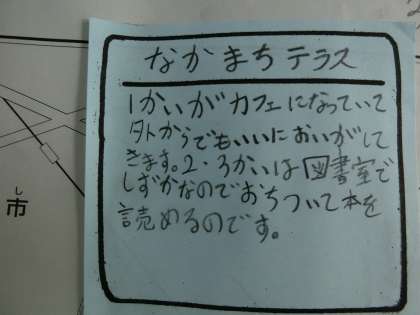 なかまちテラス
1かいがカフェになっていて
外からでもいいにおいがして
きます。2・3かいは図書室で
しずかなのでおちついて本を
読めるのです。
し
市